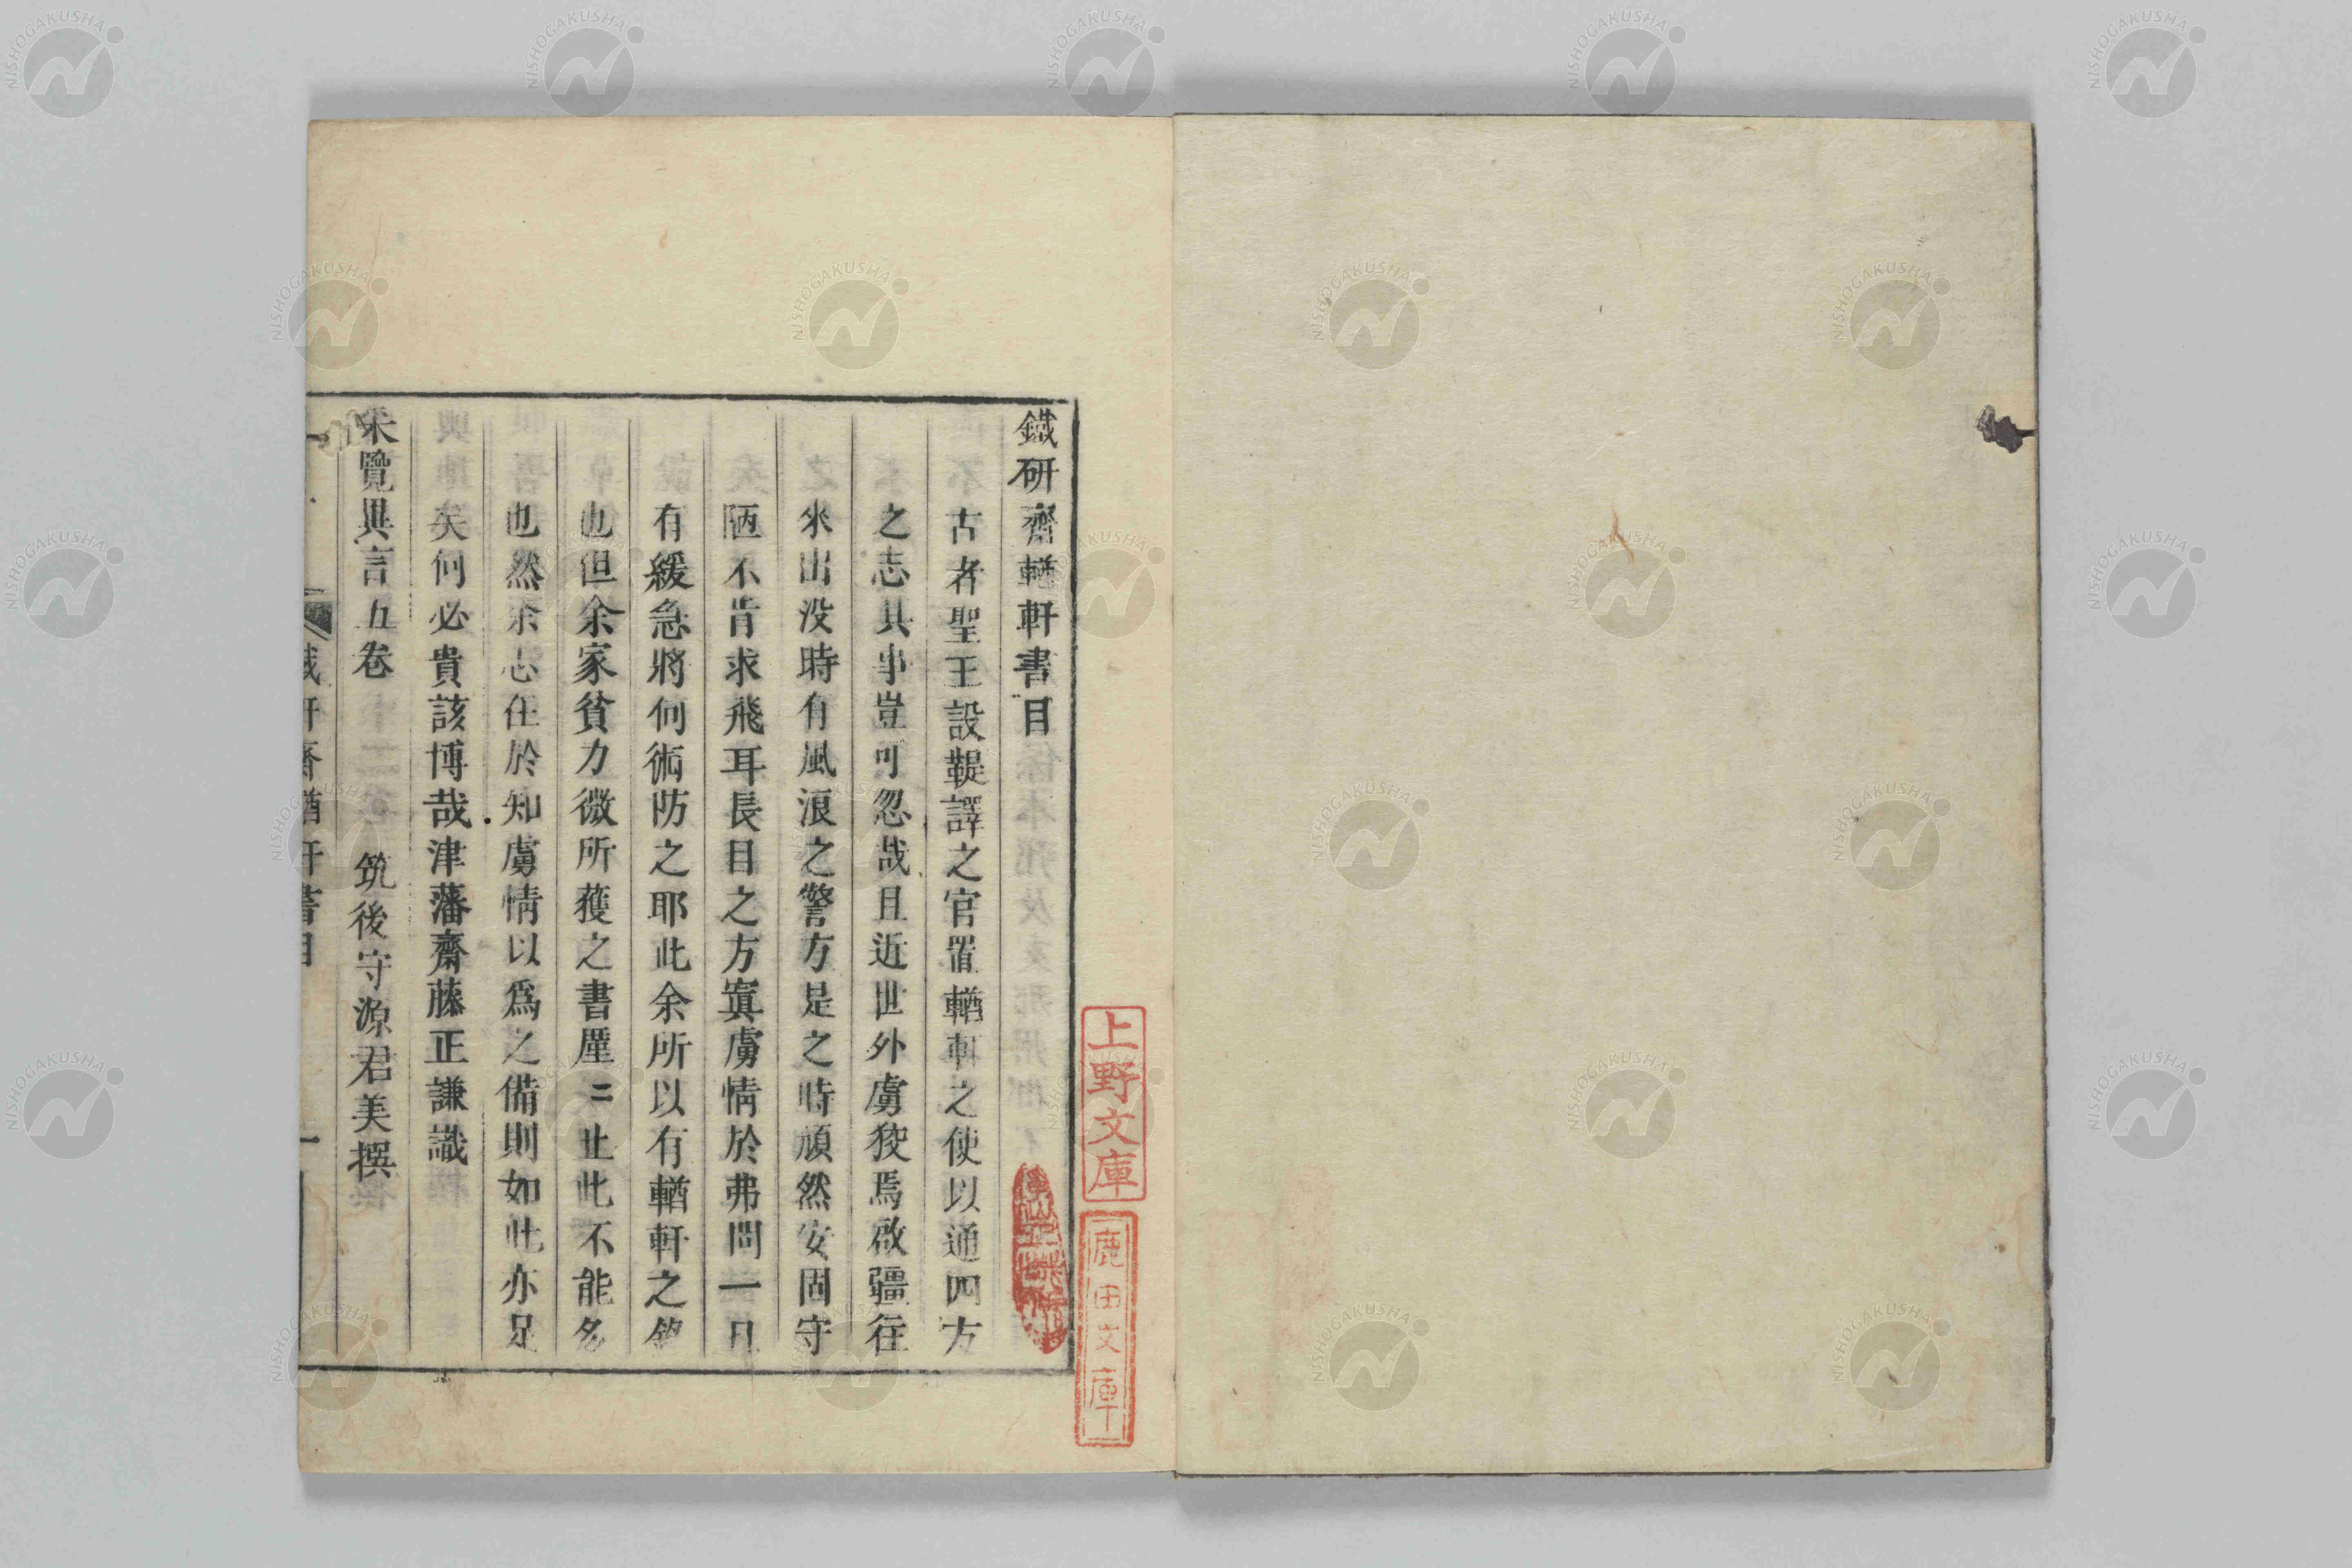 鐵研齋輶軒書目
古者聖王設鞮譯之官置輶軒之使以通四方
之志其事豈可忽哉且近世外虜狡焉啟疆往
來出没時有風浪之警方是之時頑然安固守
陋不肯求飛耳長目之方寘虜情於弗問一旦
有緩急將何術防之耶此余所以有輶軒之錄
也但余家貧力微所獲之書厪〻止此不能多
也然余志在於知虜情以爲之備則如此亦足
矣何必貴該博哉津藩齋藤正謙識
采覽異言五卷 筑後守源君美撰
鐵研齋輶軒書目 一
上野文庫
鹿田文庫
NISHOGAKUSHA